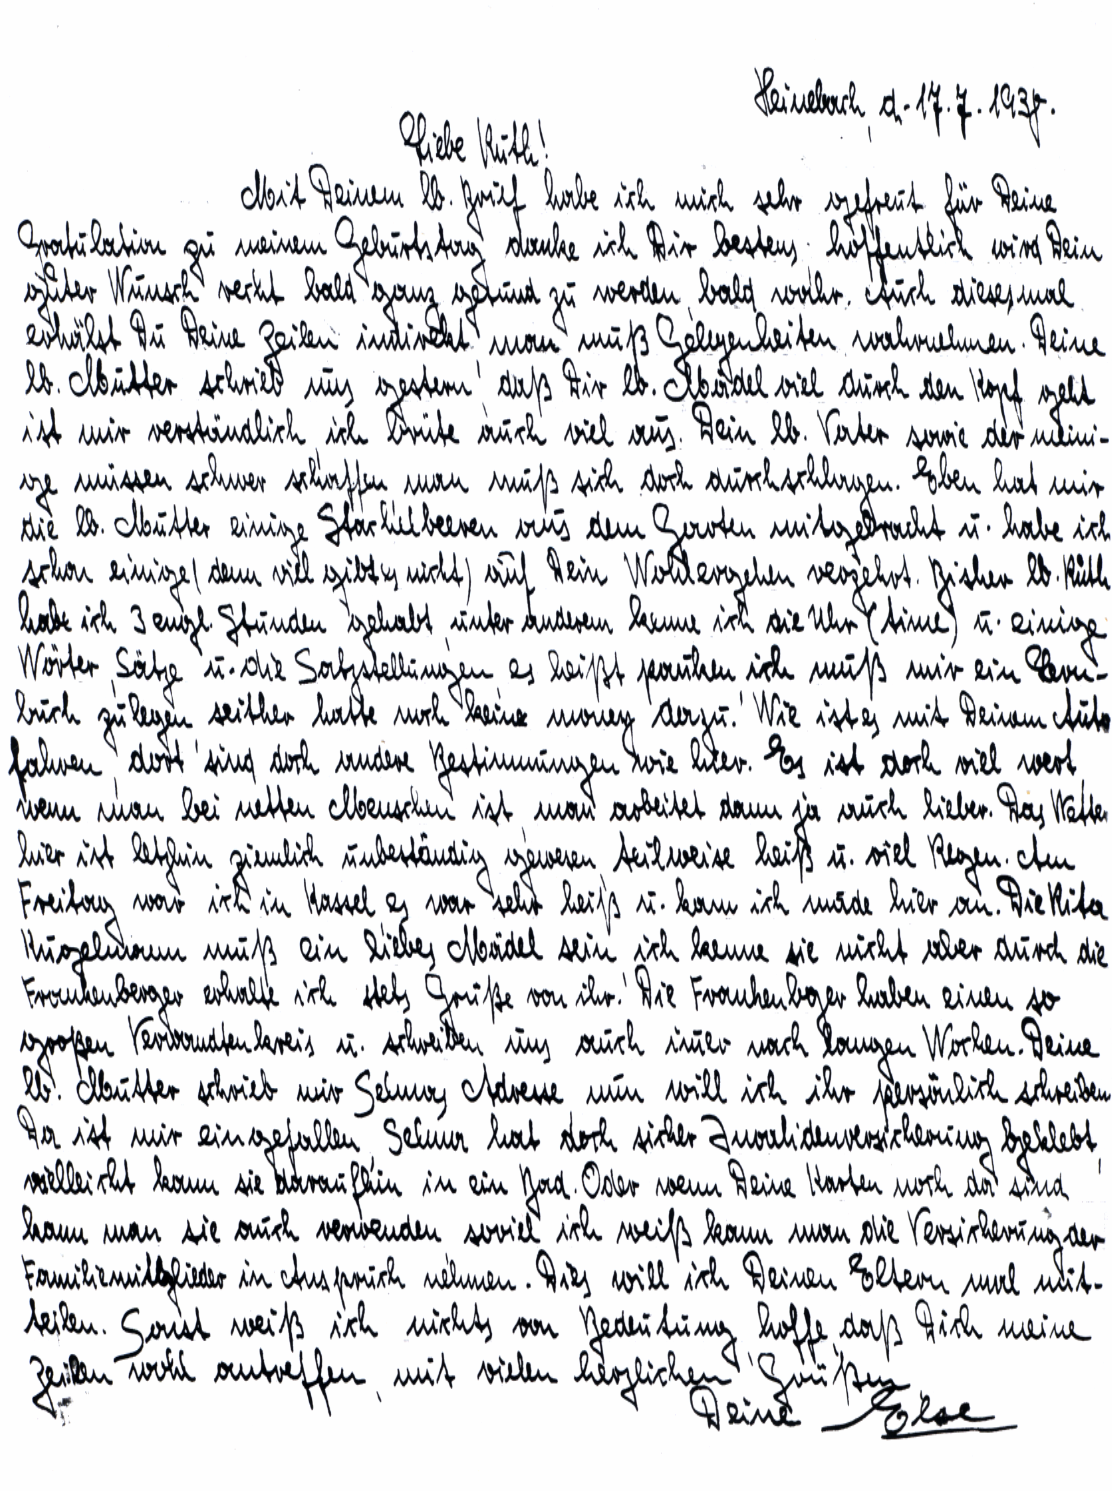 Heinebach, d. 17.7.1938.
Liebe Ruth!
Mit Deinem lb. Brief habe ich mich sehr gefreut für Deine
Gratulation zu meinem Geburtstag danke ich Dir bestens. hoffentlich wird Dein
guter Wunsch recht bald ganz gesund zu werden bald wahr. Auch diesesmal
erhälst Du Deine Zeilen indirekt man muß Gelegenheiten wahrnehmen. Deine
lb. Mutter schrieb uns gestern daß Dir lb. Mädel viel durch den Kopf geht
ist mir verständlich ich brüte auch viel aus. Dein lb. Vater sowie der meini-
ge müssen schwer schaffen man muß sich doch durchschlagen. Eben hat mir
die lb. Mutter einige Stachelbeeren aus dem Garten mitgebracht u. habe ich
schon einige (denn viel gibt es nicht) auf Dein Wohlergehen verzehrt. Bisher lb. Ruth
habe ich 3 engl. Stunden gehabt, unter anderem kenne ich die Uhr (time) u. einige
Wörter, Sätze u. die Satzstellungen, es heißt pauken ich muß mir ein Lern-
buch zulegen seither hatte noch keine money dazu. Wie ist es mit Deinem Auto
fahren, dort sind doch andere Bestimmungen wie hier. Es ist doch viel wert,
wenn man bei netten Menschen ist man arbeitet dann ja auch lieber. Das Wetter
hier ist letzhin ziemlich unbeständig gewesen, teilweise heiß u. viel Regen. Am
Freitag war ich in Kassel es war sehr heiß u. kam ich müde hier an. Die Rita
Kugelmann muß ein liebes Mädel sein ich kenne sie nicht aber durch die
Frankenberger erhalte ich stets Grüße von ihr. Die Frankenbger haben einen so
großen Verwandtenkreis u. schreiben uns auch imer nach langen Wochen. Deine
lb. Mutter schrieb mir Selmas Adresse nun will ich ihr persönlich schreiben
Da ist mir eingefallen, Selma hat doch sicher Invalidenversicherung geklebt,
vielleicht kann sie daraufhin in ein Bad. Oder wenn Deine Karten noch da sind
kann man sie auch verwenden soviel ich weiß kann man die Versicherung der
Familienmitglieder in Anspruch nehmen. Dies will ich Deinen Eltern mal mit-
teilen. Sonst weiß ich nichts von Bedeutung hoffe, daß Dich meine
Zeilen wohl antreffen, mit vielen herzlichen Grüßen
Deine Else